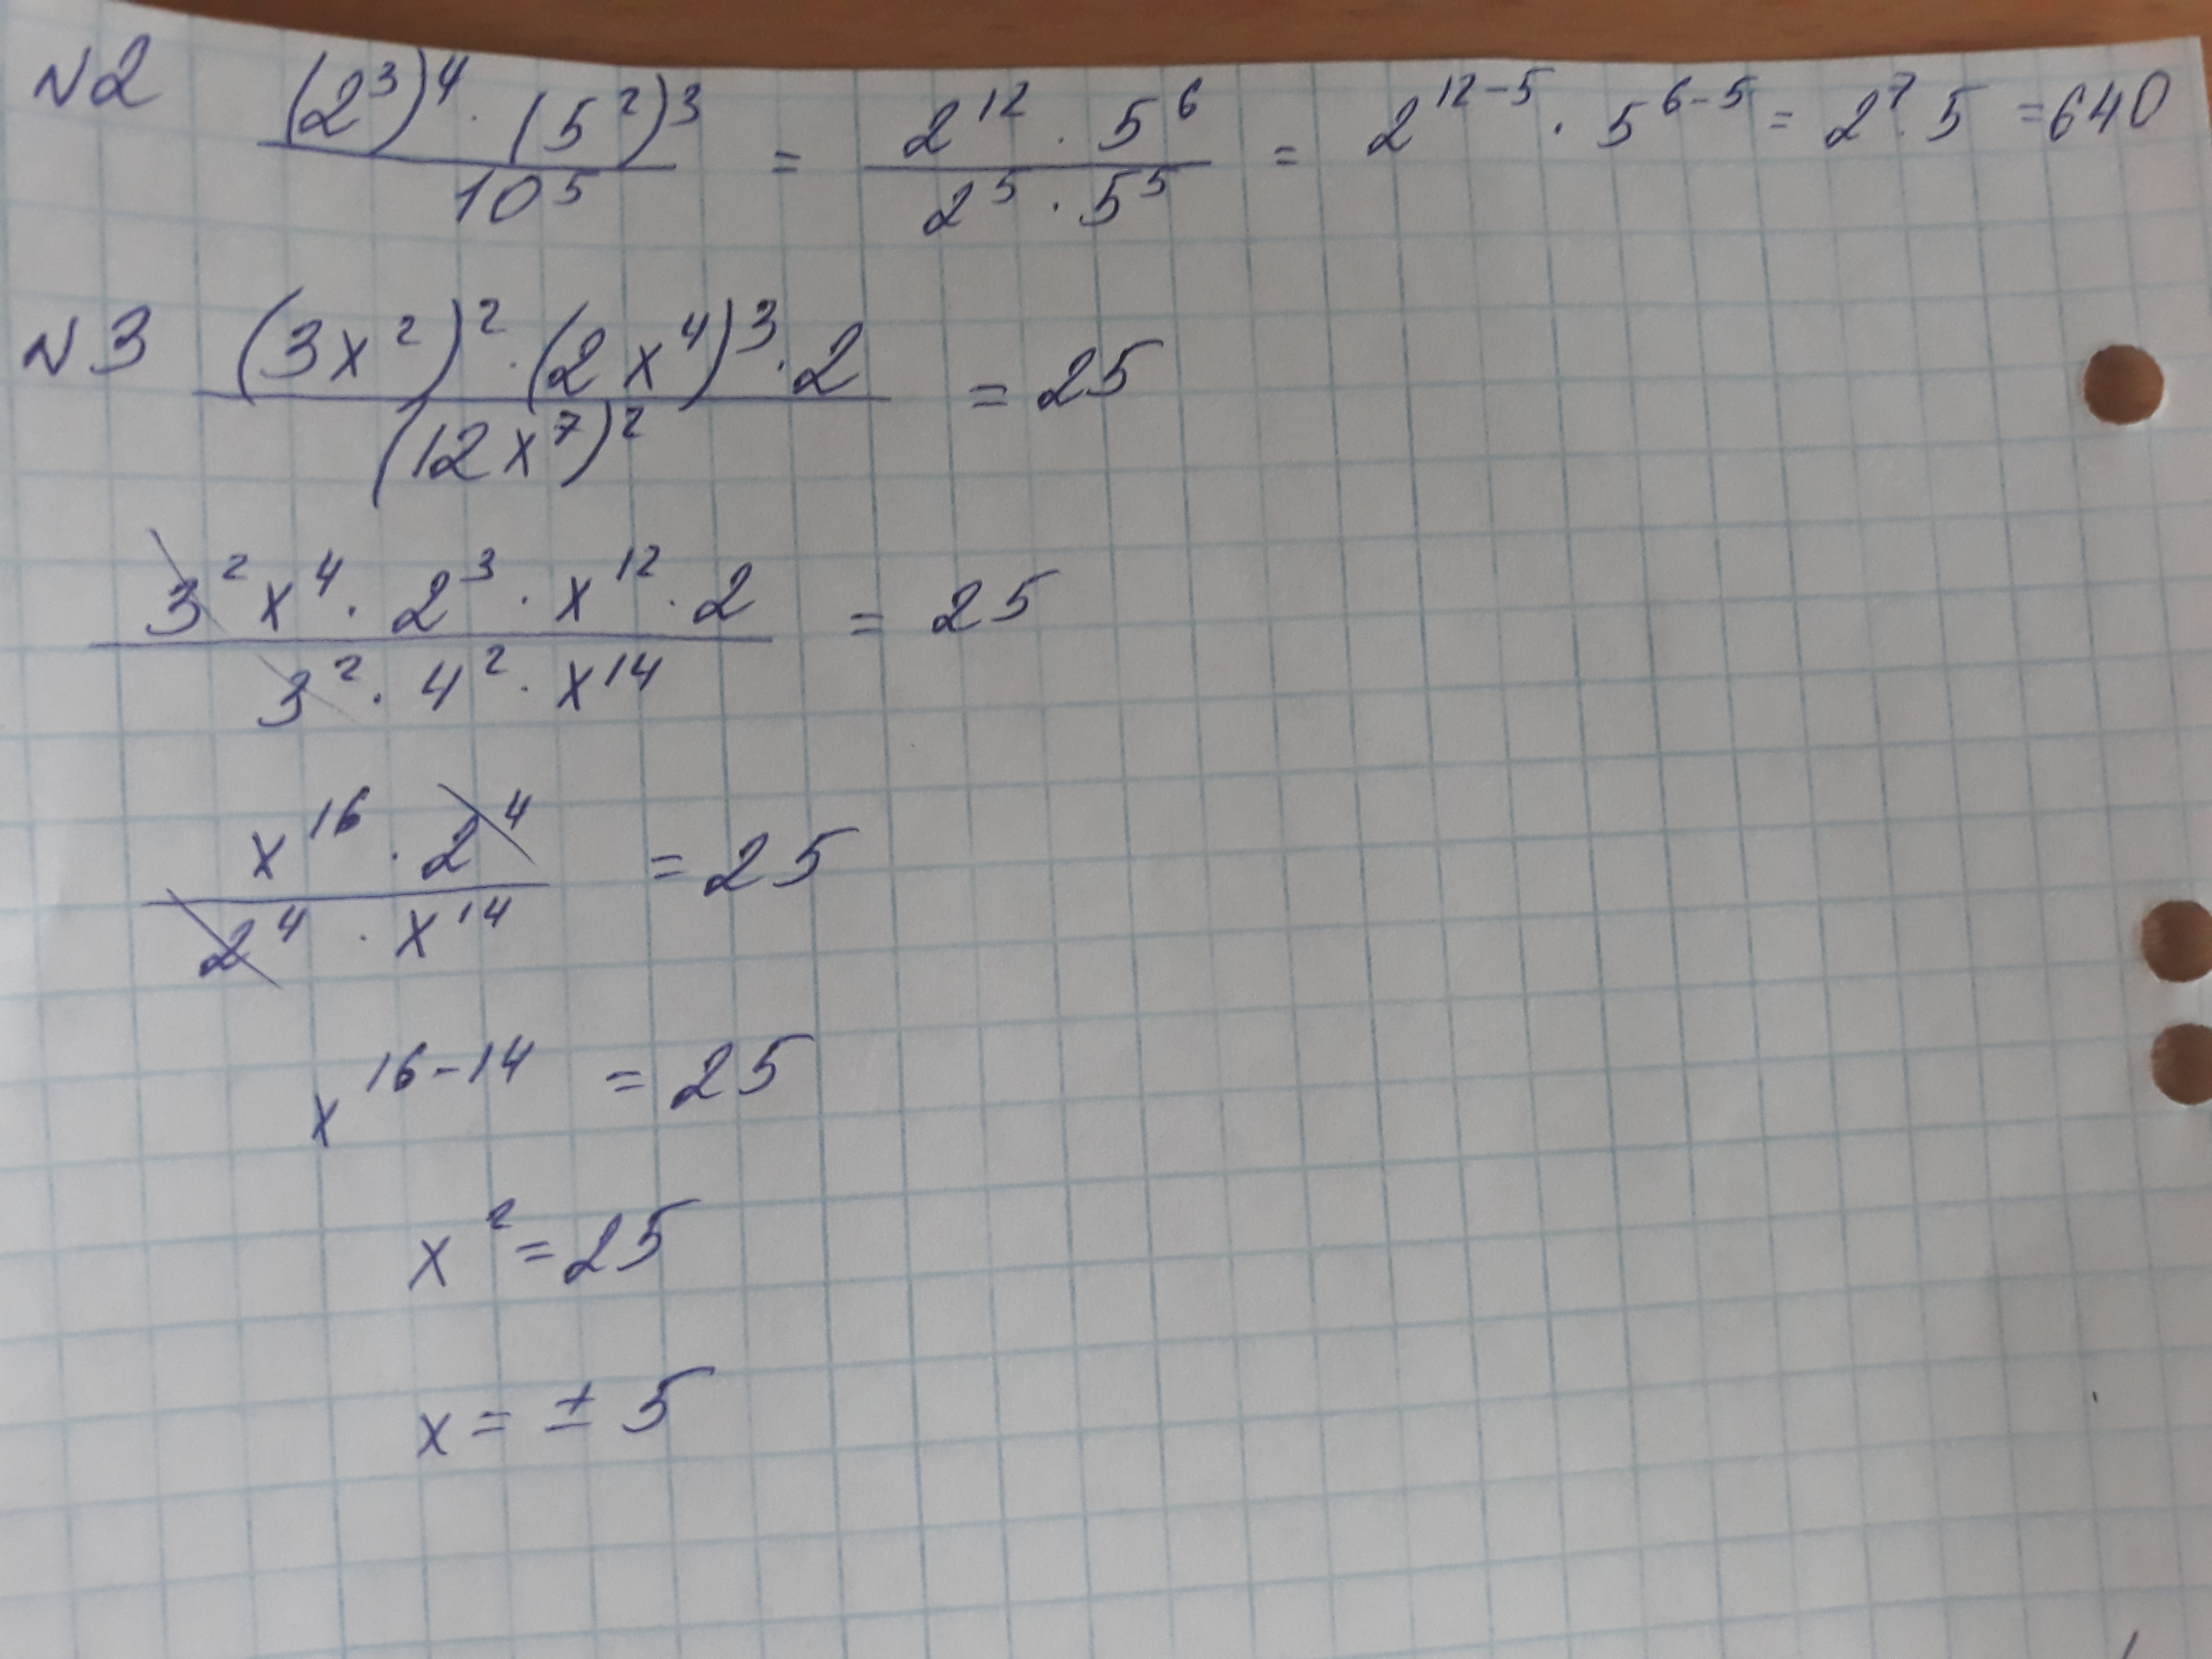 N2 (2³)⁴ · (5²)³ / 10⁵ = 2¹² · 5⁶ / 2⁵ · 5⁵ = 2¹²⁻⁵ · 5⁶⁻⁵ = 2⁷ · 5 = 640
N3 (3x²)² · (2x⁴)³ · 2 / (12x⁷)² = 25
3² x⁴ · 2³ · x¹² · 2 / 3² · 4² · x¹⁴ = 25
x¹⁶ · 2⁴ / 2⁴ · x¹⁴ = 25
x¹⁶⁻¹⁴ = 25
x² = 25
x = ± 5